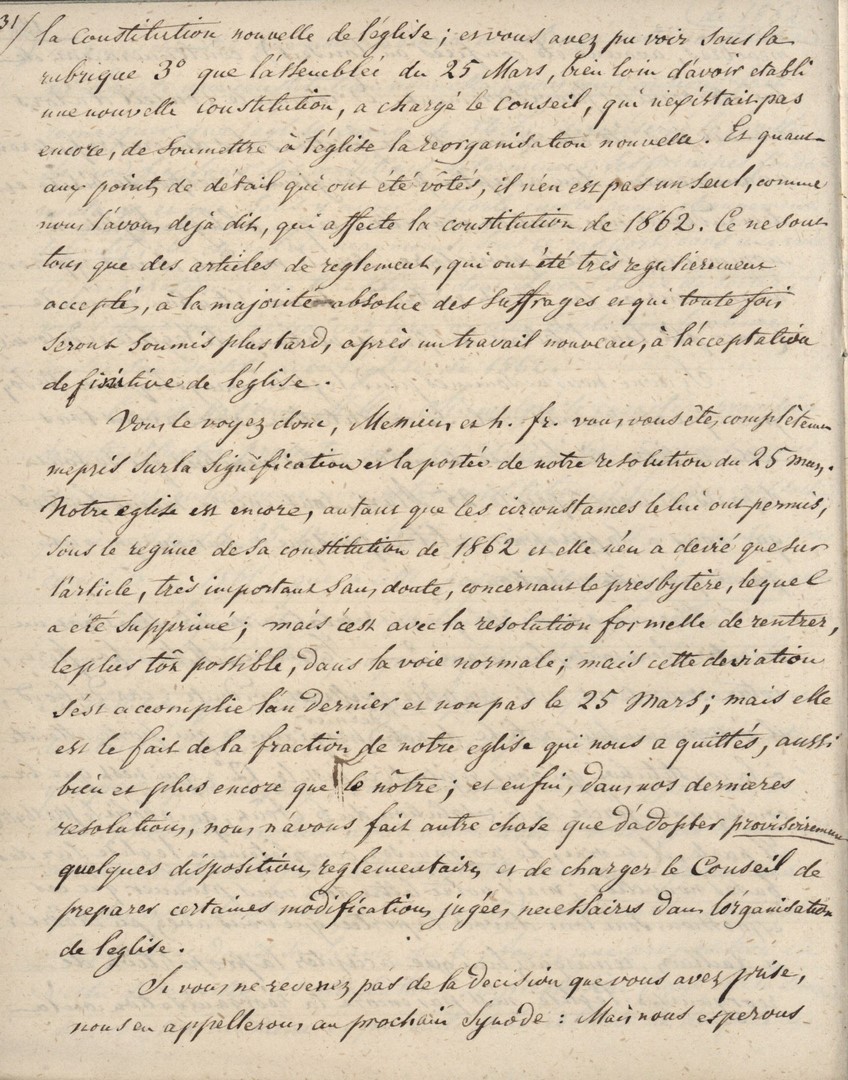 31/
la Constitution nouvelle de l'église ; et vous avez pu voir sous la
rubrique 3° que l'assemblée du 25 Mars, bien loin d'avoir etabli
une nouvelle constitution, a chargé le Conseil, qui n'existait pas
encore, de soumettre à l'église la reorganisation nouvelle. Et quant
aux points de détail qui ont été vôtés, il n'en est pas un seul, comme
nous l'avons dejà dit, qui affecte la constitution de 1862. Ce ne sont
tous que des articles de reglement, qui ont été très regulierement
acceptés, à la majorité absolue des suffrages et qui toute fois
seront soumis plus tard, après un travail nouveau, à l'acceptation
definitive de l'église.
Vous le voyez donc, Messieurs et h. fr. vous vous êtes complètement
mepris sur la signification et la portée de notre resolution du 25 mars.
Notre eglise est encore, autant que les circonstances le lui ont permis,
sous le regime de sa constitution de 1862 et elle n'en a devié que sur
l'article, très important sans doute, concernant le presbytère, lequel
a été supprimé ; mais c'est avec la resolution formelle de rentrer,
le plus tôt possible, dans la voie normale ; mais cette deviation
s'est accomplie l'an dernier et non pas le 25 Mars ; mais elle
est le fait de la fraction de notre eglise qui nous a quittés, aussi
bien et plus encore que le nôtre ; et enfin, dans nos dernieres
resolutions, nous n'avons fait autre chose que d'adopter provisoirement
quelques dispositions reglementaires et de charger le Conseil de
preparer certaines modifications jugées necessaires dans l'organisation
de l'eglise.
Si vous ne revenez pas de la decision que vous avez prise,
nous en appellerons au prochain Synode : Mais nous esperons